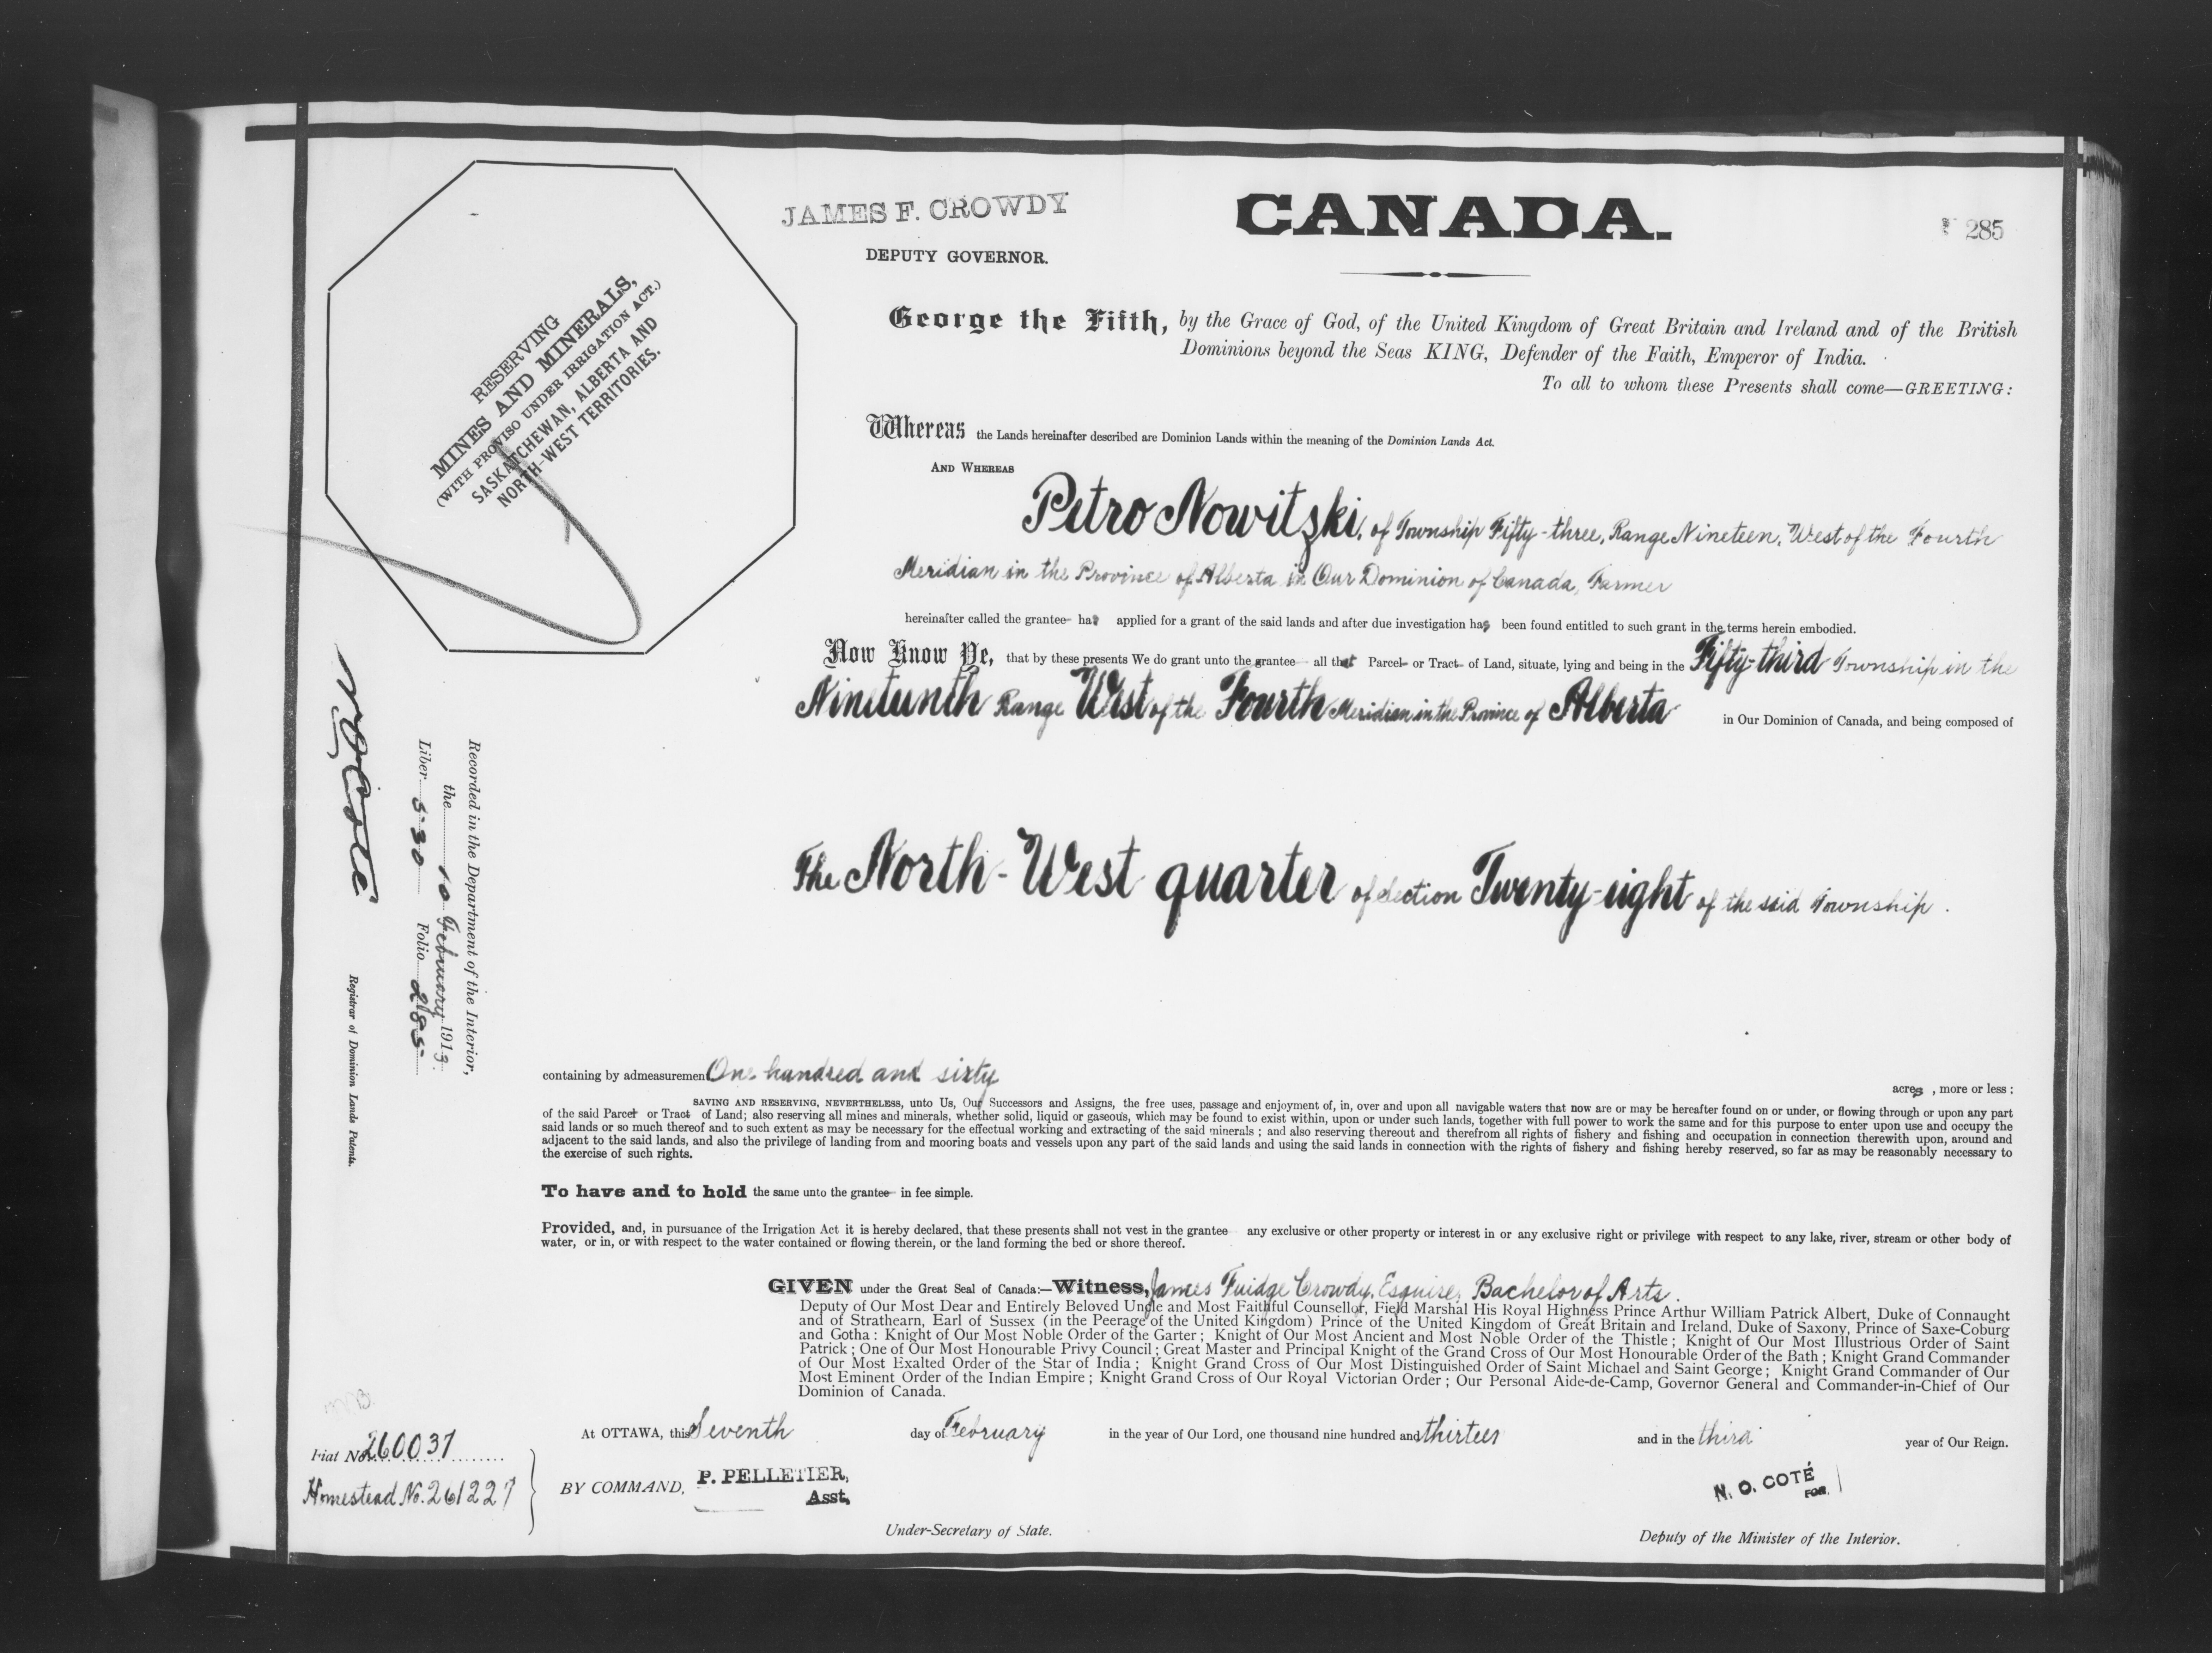 JAMES F. CROWDY
DEPUTY GOVERNOR.
CANADA.
285
RESERVING
MINES AND MINERALS,
(WITH PROVISO UNDER IRRIGATION ACT.)
SASKATCHEWAN, ALBERTA AND
NORTH-WEST TERRITORIES.
George the Fifth, by the Grace of God, of the United Kingdom of Great Britain and Ireland and of the British
Dominions beyond the Seas KING, Defender of the Faith, Emperor of India.
To all to whom these Presents shall come—GREETING:
Whereas the Lands hereinafter described are Dominion Lands within the meaning of the Dominion Lands Act.
AND WHEREAS
Petro Nowitski, of Township Fifty-three, Range Nineteen, West of the Fourth
Meridian in the Province of Alberta in Our Dominion of Canada, Farmer
hereinafter called the grantee has applied for a grant of the said lands and after due investigation has been found entitled to such grant in the terms herein embodied.
Now Know Ye, that by these presents We do grant unto the grantee all that Parcel or Tract of Land, situate, lying and being in the Fifty-third Township in the
Nineteenth Range West of the Fourth Meridian in the Province of Alberta in Our Dominion of Canada, and being composed of
The North-West quarter of Section Twenty-eight of the said Township.
Recorded in the Department of the Interior,
the 10 February 1913.
Liber 530 Folio 285
N O Coté
Registrar of Dominion Lands Patents.
containing by admeasurement One hundred and sixty acres, more or less;
SAVING AND RESERVING, NEVERTHELESS, unto Us, Our Successors and Assigns, the free uses, passage and enjoyment of, in, over and upon all navigable waters that now are or may be hereafter found on or under, or flowing through or upon any part
of the said Parcel or Tract of Land; also reserving all mines and minerals, whether solid, liquid or gaseous, which may be found to exist within, upon or under such lands, together with full power to work the same and for this purpose to enter upon use and occupy the
said lands or so much thereof and to such extent as may be necessary for the effectual working and extracting of the said minerals; and also reserving thereout and therefrom all rights of fishery and fishing and occupation in connection therewith upon, around and
adjacent to the said lands, and also the privilege of landing from and mooring boats and vessels upon any part of the said lands and using the said lands in connection with the rights of fishery and fishing hereby reserved, so far as may be reasonably necessary to
the exercise of such rights.
To have and to hold the same unto the grantee in fee simple.
Provided, and, in pursuance of the Irrigation Act it is hereby declared, that these presents shall not vest in the grantee any exclusive or other property or interest in or any exclusive right or privilege with respect to any lake, river, stream or other body of
water, or in, or with respect to the water contained or flowing therein, or the land forming the bed or shore thereof.
GIVEN under the Great Seal of Canada:—Witness, James Fuidge Crowdy, Esquire, Bachelor of Arts.
Deputy of Our Most Dear and Entirely Beloved Uncle and Most Faithful Counsellor, Field Marshal His Royal Highness Prince Arthur William Patrick Albert, Duke of Connaught
and of Strathearn, Earl of Sussex (in the Peerage of the United Kingdom) Prince of the United Kingdom of Great Britain and Ireland, Duke of Saxony, Prince of Saxe-Coburg
and Gotha: Knight of Our Most Noble Order of the Garter; Knight of Our Most Ancient and Most Noble Order of the Thistle; Knight of Our Most Illustrious Order of Saint
Patrick; One of Our Most Honourable Privy Council; Great Master and Principal Knight of the Grand Cross of Our Most Honourable Order of the Bath; Knight Grand Commander
of Our Most Exalted Order of the Star of India; Knight Grand Cross of Our Most Distinguished Order of Saint Michael and Saint George; Knight Grand Commander of Our
Most Eminent Order of the Indian Empire; Knight Grand Cross of Our Royal Victorian Order; Our Personal Aide-de-Camp, Governor General and Commander-in-Chief of Our
Dominion of Canada.
At OTTAWA, this Seventh day of February in the year of Our Lord, one thousand nine hundred and thirteen and in the third year of Our Reign.
Fiat No. 260037
Homestead No. 261227
BY COMMAND, P. PELLETIER,
Asst.
Under-Secretary of State.
N. O. COTÉ
FOR
Deputy of the Minister of the Interior.